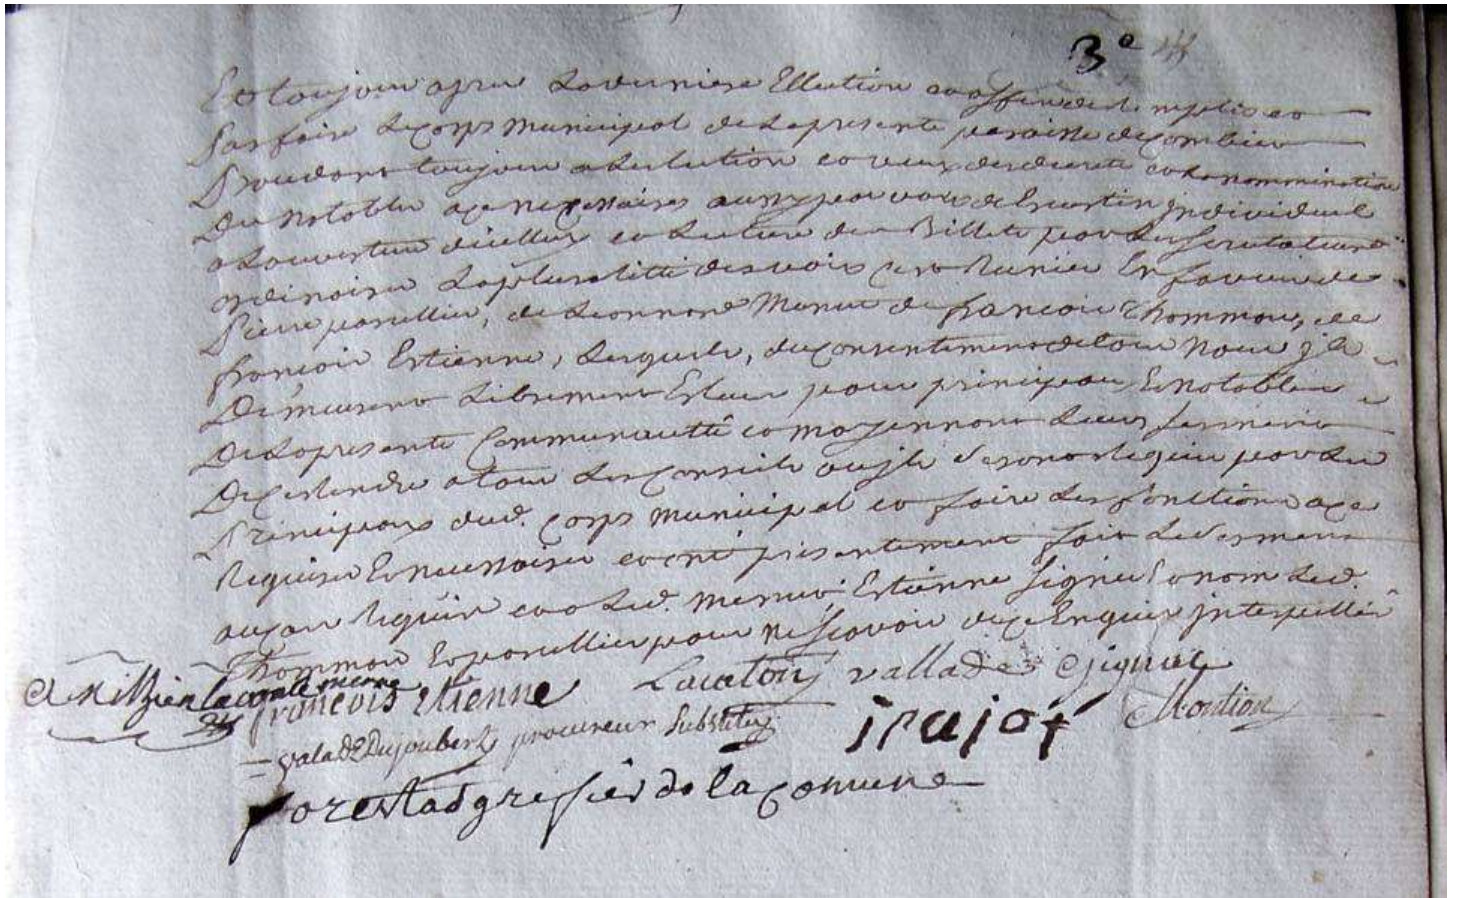 3e
Et toujour apres la derniere Ellection et affin de remplir et
Parfaire le corps municipal de la presente paroisse de Combier
Procedant toujour a l'election et veux du decret et la nommination
Des notables a ce necessaires aussy par voix de scrutin individuel
a louverture d'icelluy et lecture des Billets par les scrutateurs
ordinaires la pluralitté des voix s'est Reunier En faveur de
Pierre parellier, de Leonnard Menut de francois Thommas, de
francois Estienne, Lesquels, du consentement de tous nous, ils
Demeurent Librement Esleus pour principaux Et notables
De la presente Communautté et moyennant Leurs serments
De s'estendre a tous les conseils ou ils seront requis par les
Principaux dud. corps municipal et faire les fonctions a ce
Requises Et necessaires et ont presentement fait le serment
au cas requis et a led. menut, Estienne signé Et non led.
Thommas Et parellier pour ne scavoir de ce Enquis interpellés
francois Etienne Lavaton valladet Gignac
valade Dujoubert procureur Substitut jpajot Montion
forestas grefiér de la comune